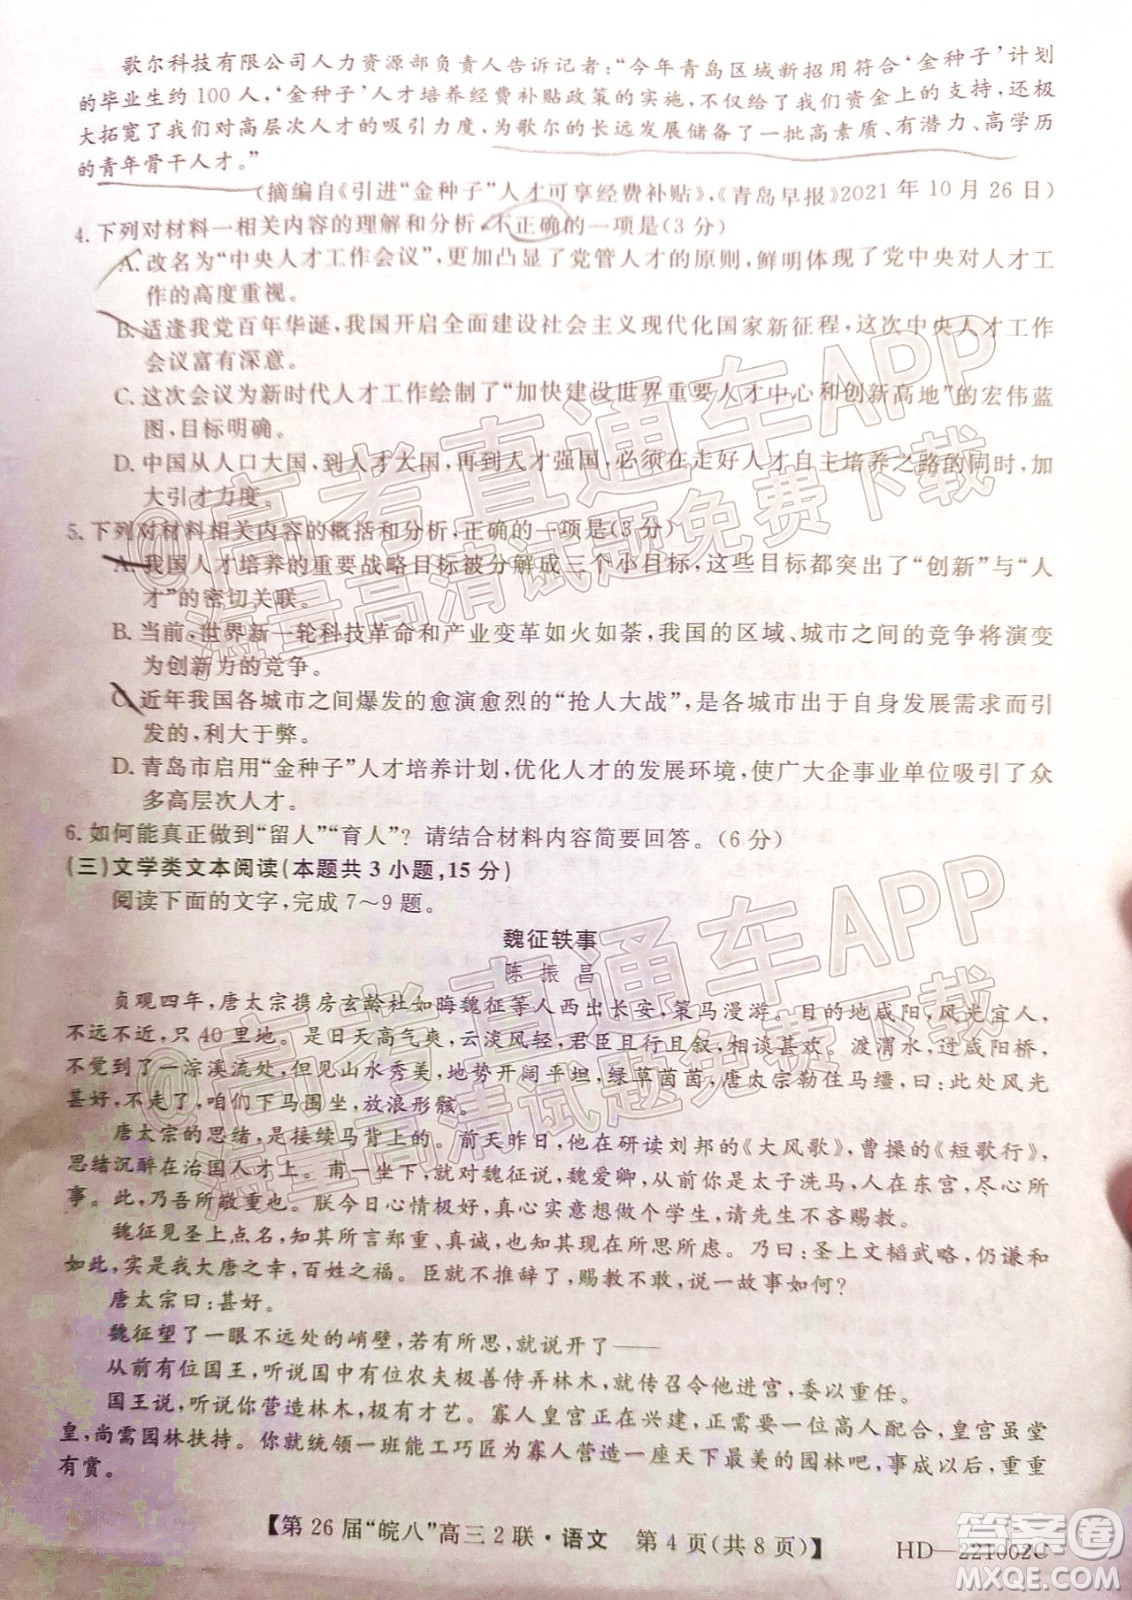 歌尔科技有限公司人力资源部负责人告诉记者:“今年青岛区域新招用符合‘金种子’计划
的毕业生约100人,‘金种子’人才培养经费补贴政策的实施,不仅给了我们资金上的支持,还极
大拓宽了我们对高层次人才的吸引力度,为歌尔的长远发展储备了一批高素质、有潜力、高学历
的青年骨干人才。”
(摘编自《引进“金种子”人才可享经费补贴》,《青岛早报》2021年10月26日)
4.下列对材料一相关内容的理解和分析,不正确的一项是(3分)
A.改名为“中央人才工作会议”,更加凸显了党管人才的原则,鲜明体现了党中央对人才工
作的高度重视。
B.适逢我党百年华诞,我国开启全面建设社会主义现代化国家新征程,这次中央人才工作
会议富有深意。
C.这次会议为新时代人才工作绘制了“加快建设世界重要人才中心和创新高地”的宏伟蓝
图,目标明确。
D.中国从人口大国,到人才大国,再到人才强国,必须在走好人才自主培养之路的同时,加
大引才力度。
5.下列对材料相关内容的概括和分析,正确的一项是(3分)
A.我国人才培养的重要战略目标被分解成三个小目标,这些目标都突出了“创新”与“人
才”的密切关联。
B.当前,世界新一轮科技革命和产业变革如火如荼,我国的区域、城市之间的竞争将演变
为创新力的竞争。
C.近年我国各城市之间爆发的愈演愈烈的“抢人大战”,是各城市出于自身发展需求而引
发的,利大于弊。
D.青岛市启用“金种子”人才培养计划,优化人才的发展环境,使广大企事业单位吸引了众
多高层次人才。
6.如何能真正做到“留人”“育人”?请结合材料内容简要回答。(6分)
(三)文学类文本阅读(本题共3小题,15分)
阅读下面的文字,完成7～9题。
魏征轶事
陈振昌
贞观四年,唐太宗携房玄龄杜如晦魏征等人西出长安,策马漫游。目的地咸阳,风光宜人,
不远不近,只40里地。是日天高气爽,云淡风轻,君臣且行且叙,相谈甚欢。渡渭水,过咸阳桥,
不觉到了一淙溪流处,但见山水秀美,地势开阔平坦,绿草茵茵,唐太宗勒住马缰,曰:此处风光
甚好,不走了,咱们下马围坐,放浪形骸。
唐太宗的思绪,是接续马背上的。前天昨日,他在研读刘邦的《大风歌》,曹操的《短歌行》,
思绪沉醉在治国人才上。甫一坐下,就对魏征说,魏爱卿,你曾是太子洗马,在东宫,尽心所
事。此,乃吾所敬重也。朕今日心情极好,真实意想做个学生,请先生不吝赐教。
魏征见圣上点名,其所言郑重、诚恳,想必有所思所虑。乃曰:圣上文韬武略,仍谦和
如此,真是我大唐之幸,百姓之福。臣就不推辞了,赐教不敢,说一故事如何?
唐太宗曰:甚好。
魏征望了一眼不远处的峭壁,若有所思,说开了——
从前有位国王,听说国中有位农夫极善侍弄林木,就召他进宫,委以重任。
国王说,听说你营造林木,极有才艺。寡人皇宫正在兴建,正需要一位高人配合,皇宫虽堂
皇,尚需园林扶持。你就统领一班能工巧匠为寡人营造一座天下最美的园林吧,事成以后,重重
有赏。
【第26届“皖八”高三2联·语文 第4页(共8页)】 HD—221002C
@高考直通车APP
海量高清试题免费下载
@高考直通车APP
海量高清试题免费下载
答案圈
MXQE.COM